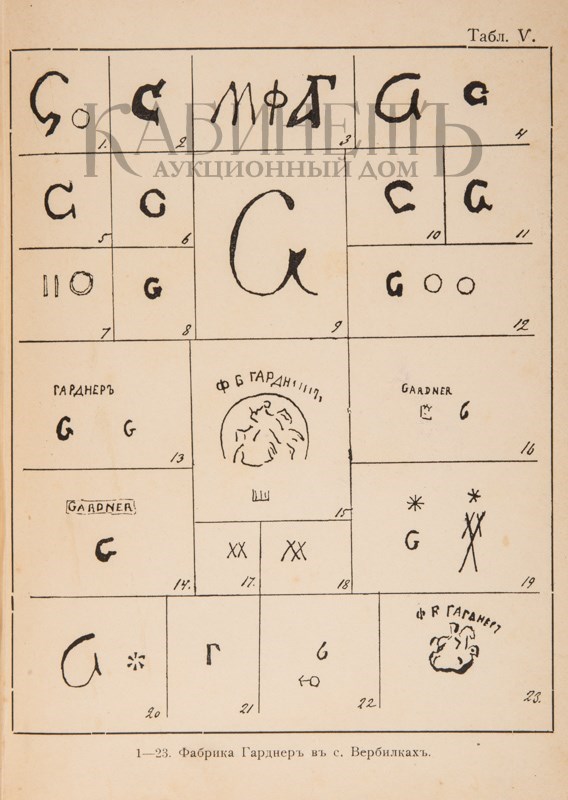 Табл. V.
КАБИНЕТЪ
АУКЦИОННЫЙ ДОМ
1.
2
МФГ
3
G
G
4
G
5
G
6
G
9
10
G
11
7
G
8
G
12
ГАРДНЕРЪ
G G
13
GARDNER
G
16
15
GARDNER
G
14.
XX
17.
XX
18
G
19
G
20
Г
21
G
22
23.
1—23. Фабрика Гарднеръ въ с. Вербилкахъ.